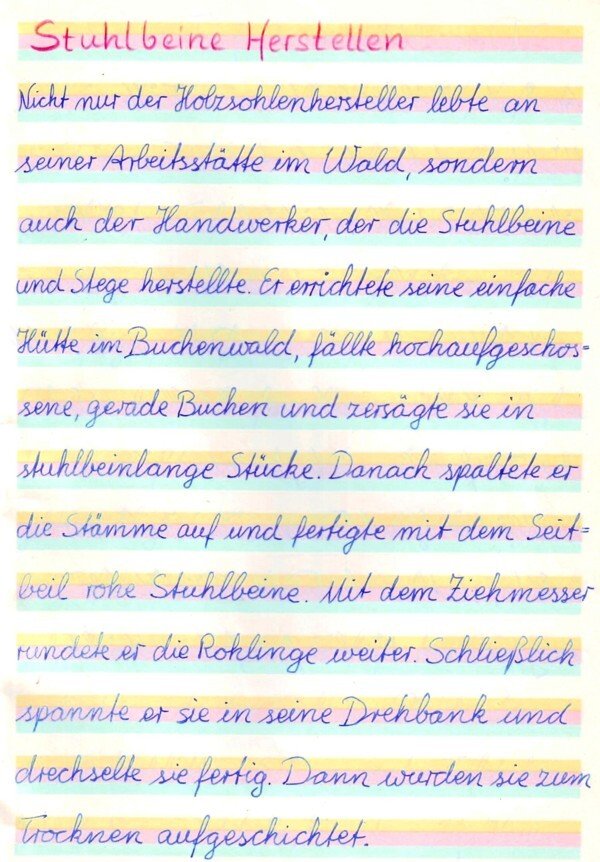 Stuhlbeine Herstellen
Nicht nur der Holzsohlenhersteller lebte an
seiner Arbeitsstätte im Wald, sondern
auch der Handwerker, der die Stuhlbeine
und Stege herstellte. Er errichtete seine einfache
Hütte im Buchenwald, fällte hochaufgeschos=
sene, gerade Buchen und zersägte sie in
stuhlbeinlange Stücke. Danach spaltete er
die Stämme auf und fertigte mit dem Seit=
beil rohe Stuhlbeine. Mit dem Ziehmesser
rundete er die Rohlinge weiter. Schließlich
spannte er sie in seine Drehbank und
drechselte sie fertig. Dann wurden sie zum
Trocknen aufgeschichtet.